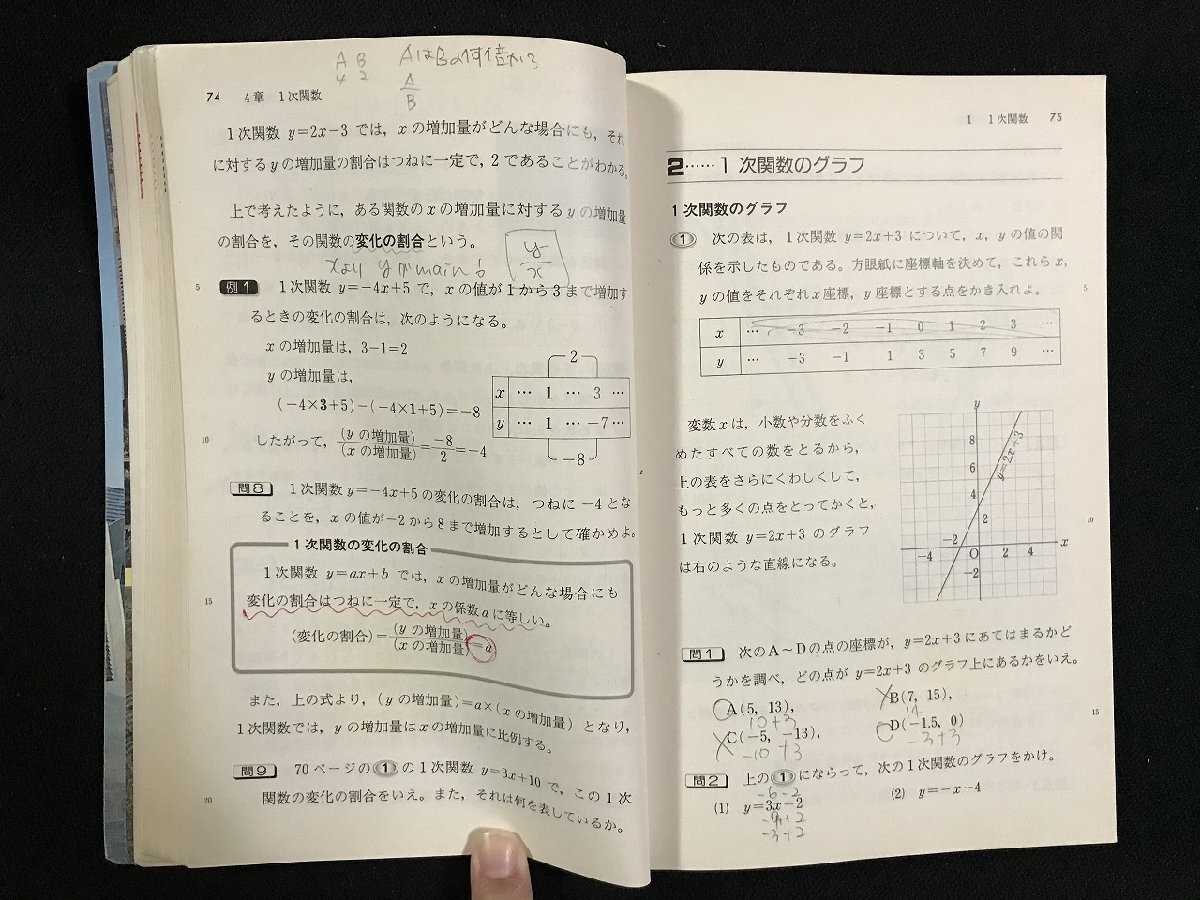 A B AはBの何倍か
4 2 A/B
74 4章 1次関数
1次関数 y=2x−3 では，xの増加量がどんな場合にも，それ
に対するyの増加量の割合はつねに一定で，2であることがわかる。
上で考えたように，ある関数のxの増加量に対するyの増加量
の割合を，その関数の変化の割合という。
xより yがmain y/x
5 例1 1次関数 y=−4x+5 で，xの値が1から3まで増加す
るときの変化の割合は，次のようになる。
xの増加量は，3−1=2
yの増加量は，
(−4×3+5)−(−4×1+5)=−8
10 したがって，(yの増加量)/(xの増加量)=−8/2=−4
2
x … 1 … 3 …
y … 1 … −7 …
−8
問8 1次関数 y=−4x+5 の変化の割合は，つねに −4 とな
ることを，xの値が−2から8まで増加するとして確かめよ。
1次関数の変化の割合
1次関数 y=ax+b では，xの増加量がどんな場合にも
15 変化の割合はつねに一定で，xの係数aに等しい。
(変化の割合)=(yの増加量)/(xの増加量)=a
また，上の式より，(yの増加量)=a×(xの増加量) となり，
1次関数では，yの増加量はxの増加量に比例する。
問9 70ページの①の1次関数 y=3x+10 で，この1次
20 関数の変化の割合をいえ。また，それは何を表しているか。
1 1次関数 75
2……1次関数のグラフ
1次関数のグラフ
① 次の表は，1次関数 y=2x+3 について，x，yの値の関
係を示したものである。方眼紙に座標軸を決めて，これらx，
yの値をそれぞれx座標，y座標とする点をかき入れよ。 5
x … −3 −2 −1 0 1 2 3 …
y … −3 −1 1 3 5 7 9 …
変数xは，小数や分数をふく
めたすべての数をとるから，
上の表をさらにくわしくして，
もっと多くの点をとってかくと， 10
1次関数 y=2x+3 のグラフ
は右のような直線になる。
y
8
6
4
2
−2
−4 −2 O 2 4 x
y=2x+3
問1 次のA～Dの点の座標が，y=2x+3 にあてはまるかど
うかを調べ，どの点が y=2x+3 のグラフ上にあるかをいえ。
○A(5, 13)， ×B(7, 15)， 15
10+3 14
×C(−5, −13)， ○D(−1.5, 0)
−10+3 −3+3
問2 上の①にならって，次の1次関数のグラフをかけ。
−6−2
(1) y=3x−2 (2) y=−x−4
−3−2